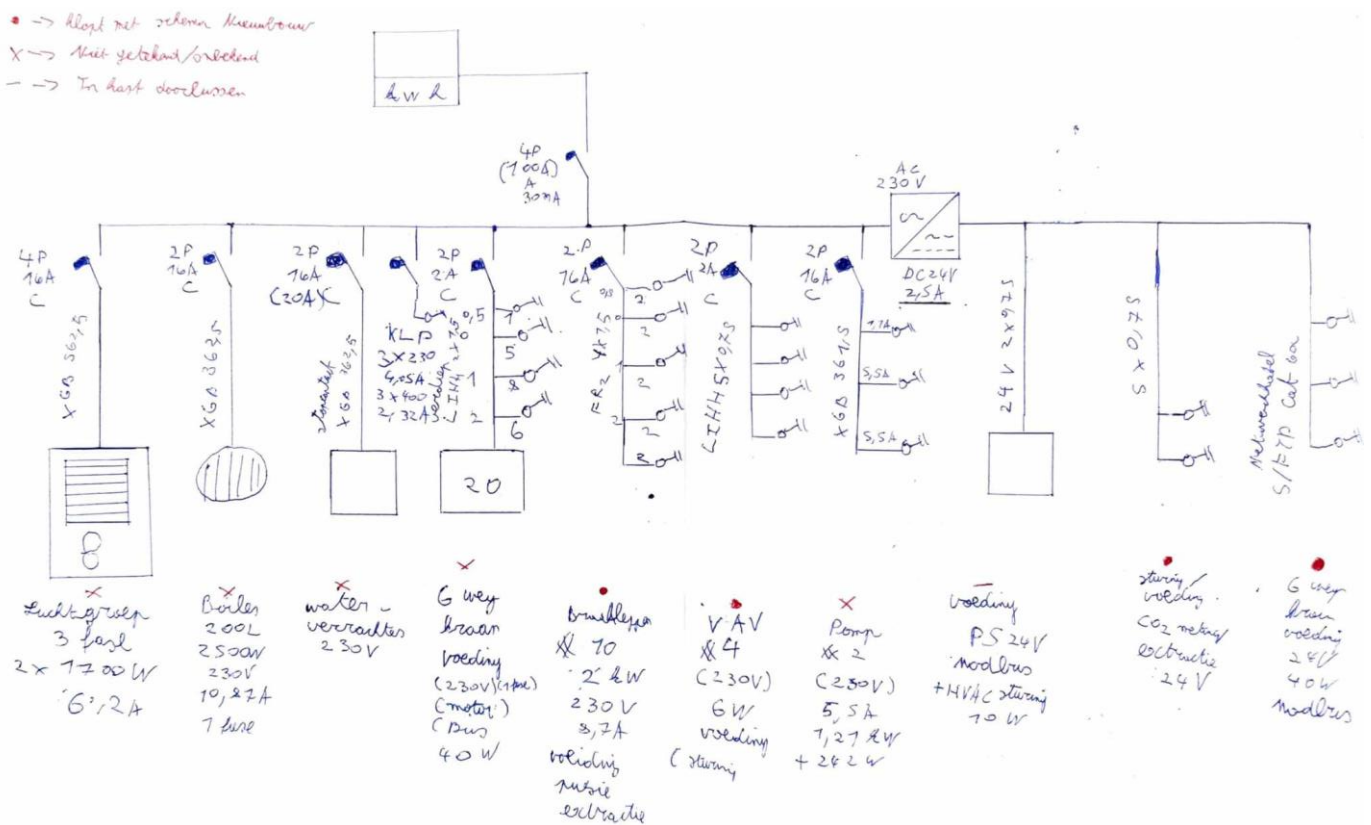 • -> klopt met schema Nieuwbouw
X -> Niet getekend/onbekend
- -> In kast doorlussen
kWh
4P
(100A)
A
30mA
AC
230V
DC 24V
2,5A
4P
16A
C
XGB 3G2,5
8
2P
16A
C
XGB 3G2,5
2P
16A
(20A) C
XGB 3G2,5
KLP
3x230
4,05A
3x400
2,32A
2P
2A
C
LIHH 2x7,5
verdiep
0,5
0
1
2
1
5
8
6
20
2P
16A
C
FR2 4x7,5
0,5
0
1
2
2
2
2
2
2
2P
2A
C
LIHH 5x0,75
2P
16A
C
XGB 3G1,5
1,1A
5,5A
5,5A
24V 2x0,75
5x0,75
Netwerkkabel
S/FTP Cat 6a
X
Luchtgroep
3 fase
2x1700W
6,2A
X
Boiler
200L
2500W
230V
10,87A
1 fase
X
water-
verzachter
230V
X
6 weg
kraan
voeding
(230V)(1fase)
(motor)
(Bus
40W
•
Brandkleppen
X 10
2kW
230V
8,7A
voeding
pulsie
extractie
•
VAV
X 4
(230V)
6W
voeding
(sturing
X
Pomp
X 2
(230V)
5,5A
1,21kW
+242W
-
voeding
PS 24V
modbus
+HVAC sturing
10W
•
sturing/
voeding
CO2 meting
extractie
24V
•
6 weg
kraan
voeding
24V
40W
modbus